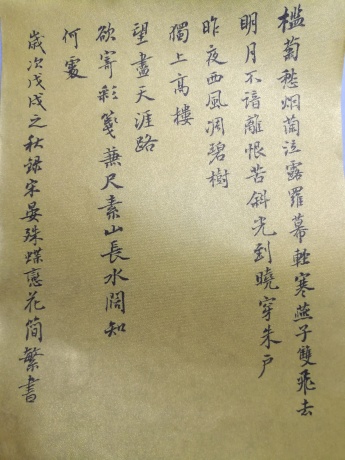 槛菊愁烟蘭泣露羅幕輕寒燕子雙飛去
明月不諳離恨苦斜光到曉穿朱户
昨夜西風凋碧樹
獨上高樓
望盡天涯路
欲寄彩箋兼尺素山長水闊知
何處
歲次戊戌之秋録宋晏殊蝶恋花简繁書